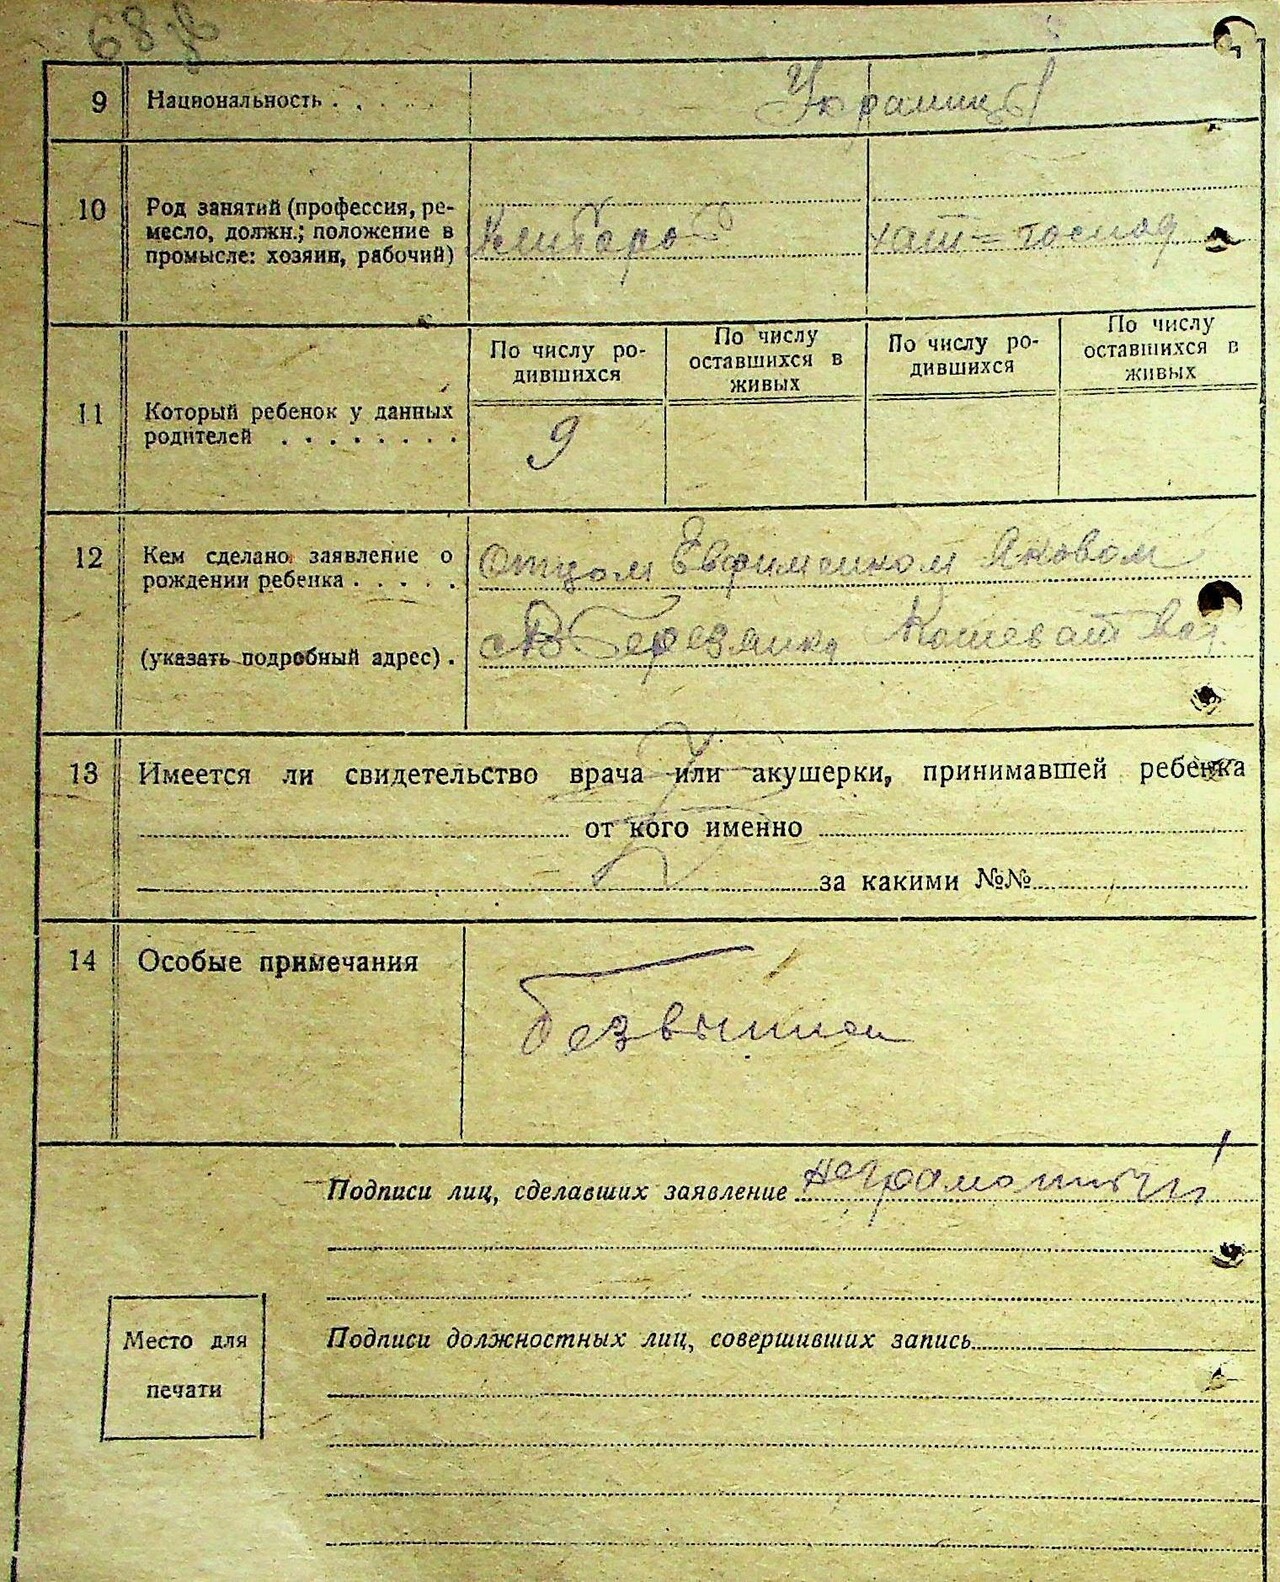 68 зв
9 Национальность . . . . . Украинцы
10 Род занятий (профессия, ре-
месло, должн.; положение в
промысле: хозяин, рабочий)
хат=господ
11 Который ребенок у данных
родителей . . . . . . . .
По числу ро-
дившихся
По числу
оставшихся в
живых
По числу ро-
дившихся
По числу
оставшихся в
живых
9
12 Кем сделано заявление о
рождении ребенка . . . . .
(указать подробный адрес) .
Отцом Евфименком Яковом
Березянка
13 Имеется ли свидетельство врача или акушерки, принимавшей ребенка
от кого именно
за какими №№
14 Особые примечания
Подписи лиц, сделавших заявление неграмотный
Место для
печати
Подписи должностных лиц, совершивших запись